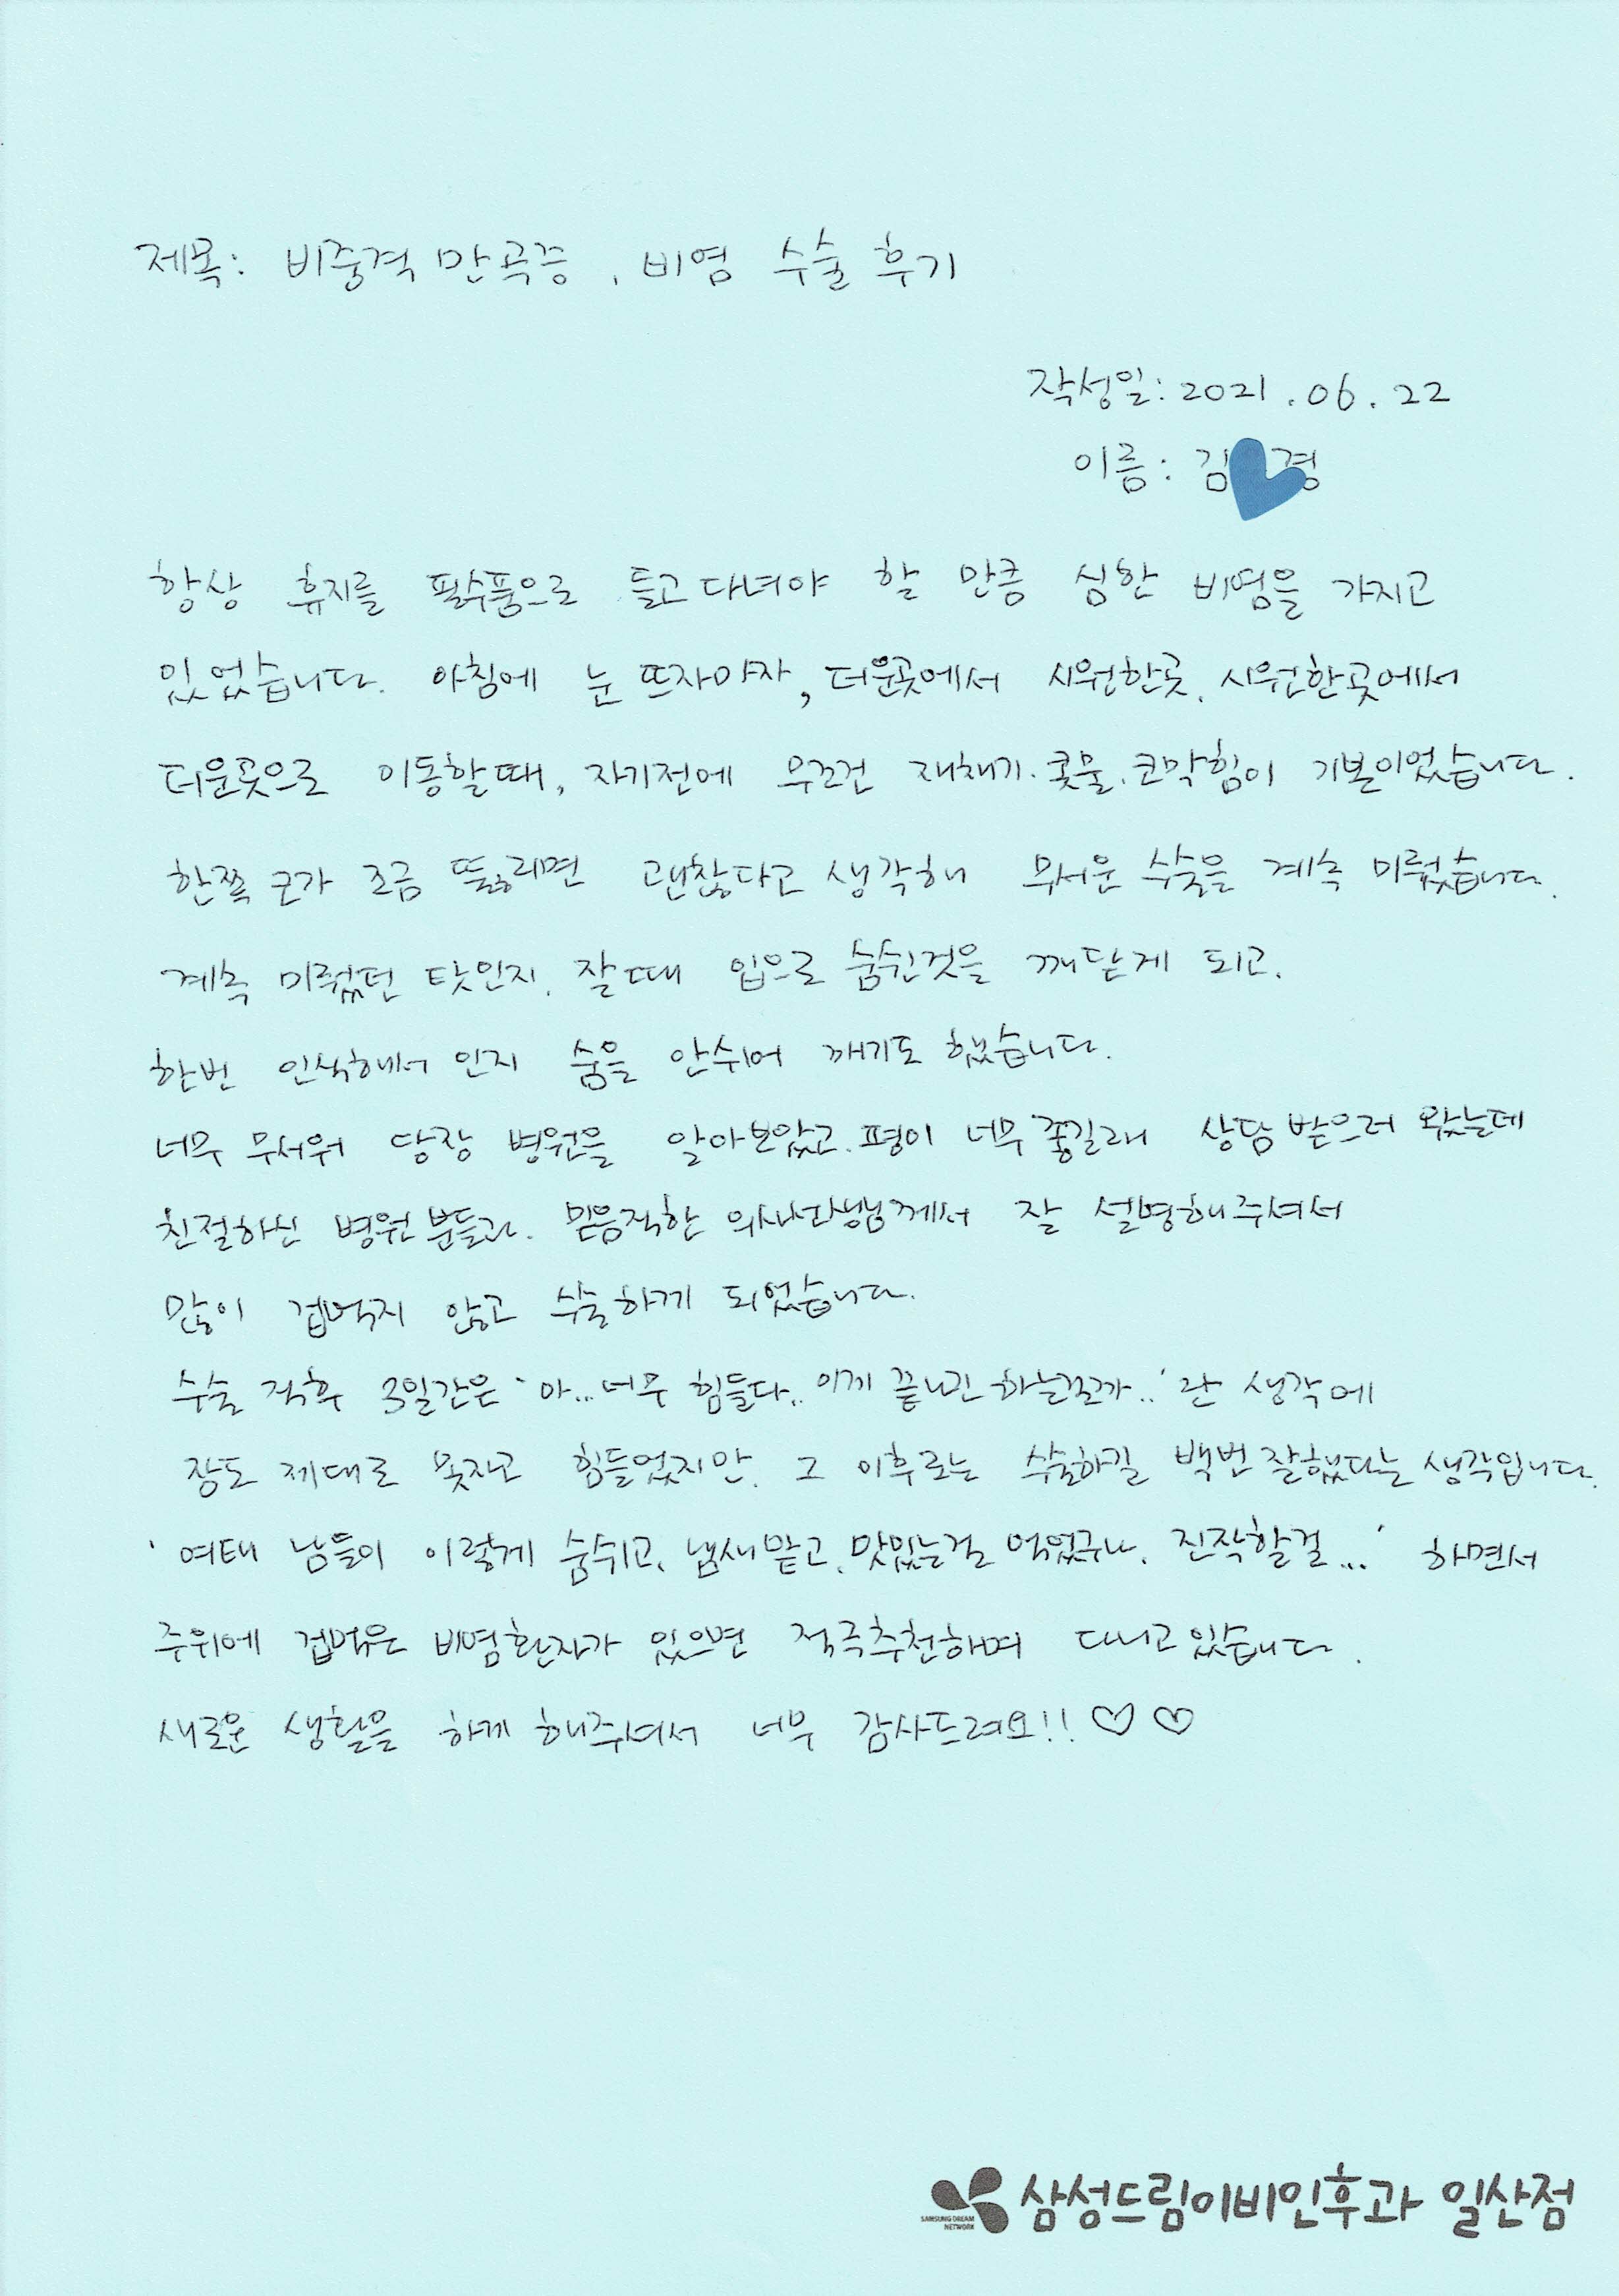 제목: 비중격 만곡증, 비염 수술 후기
작성일: 2021.06.22
이름: 김 경
항상 휴지를 필수품으로 들고다녀야 할 만큼 심한 비염을 가지고
있었습니다. 아침에 눈 뜨자마자, 더운곳에서 시원한곳, 시원한곳에서
더운곳으로 이동할때, 자기전에 무조건 재채기, 콧물, 코막힘이 기본이었습니다.
한쪽 코가 조금 뚫리면 괜찮다고 생각해 무서운 수술을 계속 미뤘습니다.
계속 미뤘던 탓인지, 잘때 입으로 숨쉰것을 깨닫게 되고,
한번 인식해서 인지 숨을 안쉬어 깨기도 했습니다.
너무 무서워 당장 병원을 알아보았고, 평이 너무좋길래 상담받으러 왔는데
친절하신 병원분들과, 믿음직한 의사선생님께서 잘 설명해주셔서
많이 겁먹지 않고 수술하게 되었습니다.
수술 직후 3일간은 '아...너무 힘들다.. 이게 끝나긴하는걸까..'란 생각에
잠도 제대로 못자고 힘들었지만, 그 이후로는 수술하길 백번잘했다는 생각입니다.
'여태 남들이 이렇게 숨쉬고, 냄새맡고, 맛있는걸 먹었구나, 진작할걸...' 하면서
주위에 겁먹은 비염환자가 있으면 적극추천하며 다니고있습니다.
새로운 생활을 하게 해주셔서 너무 감사드려요!! ♡ ♡
SAMSUNG DREAM NETWORK 삼성드림이비인후과 일산점